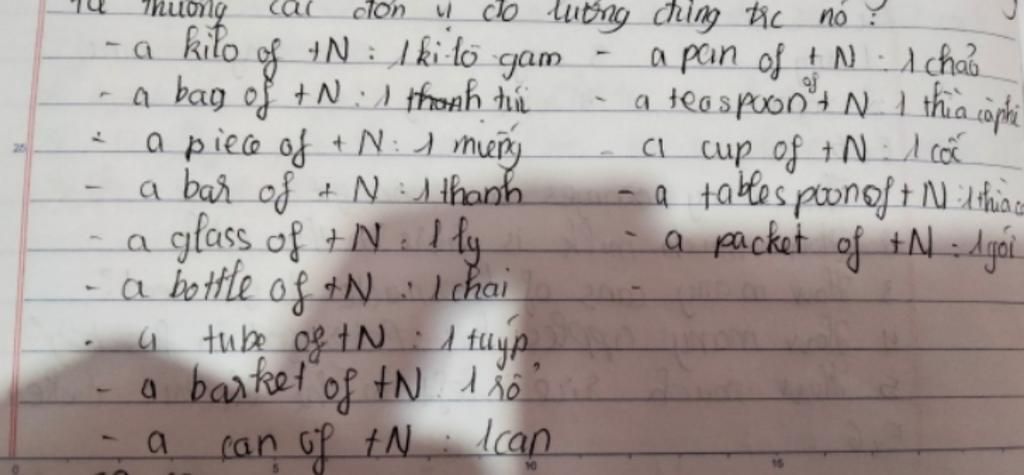 Ta thường các đơn vị đo lường đứng trc nó :
- a kilo of +N : 1 ki-lô-gam - a pan of + N : 1 chảo
- a bag of +N : 1 túi - a teaspoon of + N 1 thìa càphê
- a piece of + N : 1 miếng - a cup of +N : 1 cốc
- a bar of + N : 1 thanh - a tablespoon of + N : 1 thìa
- a glass of +N : 1 ly - a packet of +N : 1 gói
- a bottle of +N : 1 chai -
- a tube of +N : 1 tuýp
- a barket of +N 1 rổ
- a can of +N : 1 can